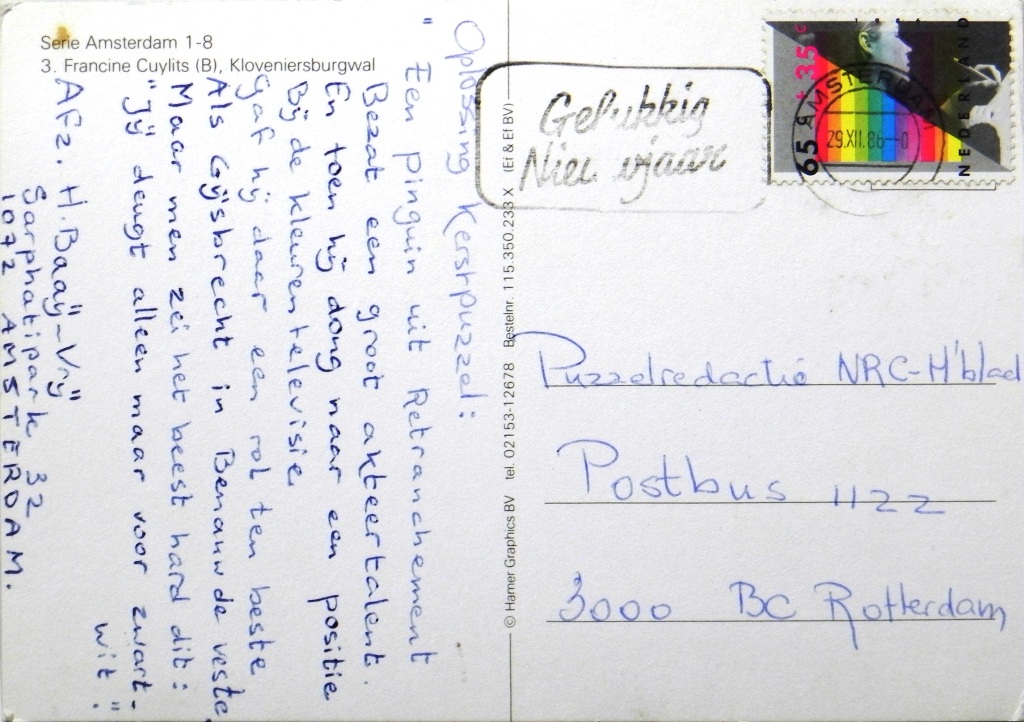 Serie Amsterdam 1-8
3. Francine Cuylits (B), Kloveniersburgwal
Oplossing Kerstpuzzel:
"Een pinguin uit Retranchement
Bezat een groot akteertalent.
En toen hij dong naar een positie
Bij de kleurentelevisie
Gaf hij daar een rol ten beste
Als Gijsbrecht in Benauwde veste
Maar men zei het beest hard dit:
"Jij deugt alleen maar voor zwart-
wit."
Afz. H. Baaij-Vrij
Sarphatipark 32
1072 AMSTERDAM.
© Hamer Graphics BV tel. 02153-12678 Bestelnr. 115.350.233 X (Ef & Ef BV)
Gelukkig
Nieuwjaar
65 + 35 c
NEDERLAND
AMSTERDAM
29.XII.86-0
Puzzelredactie NRC-H'blad
Postbus 1122
3000 BC Rotterdam